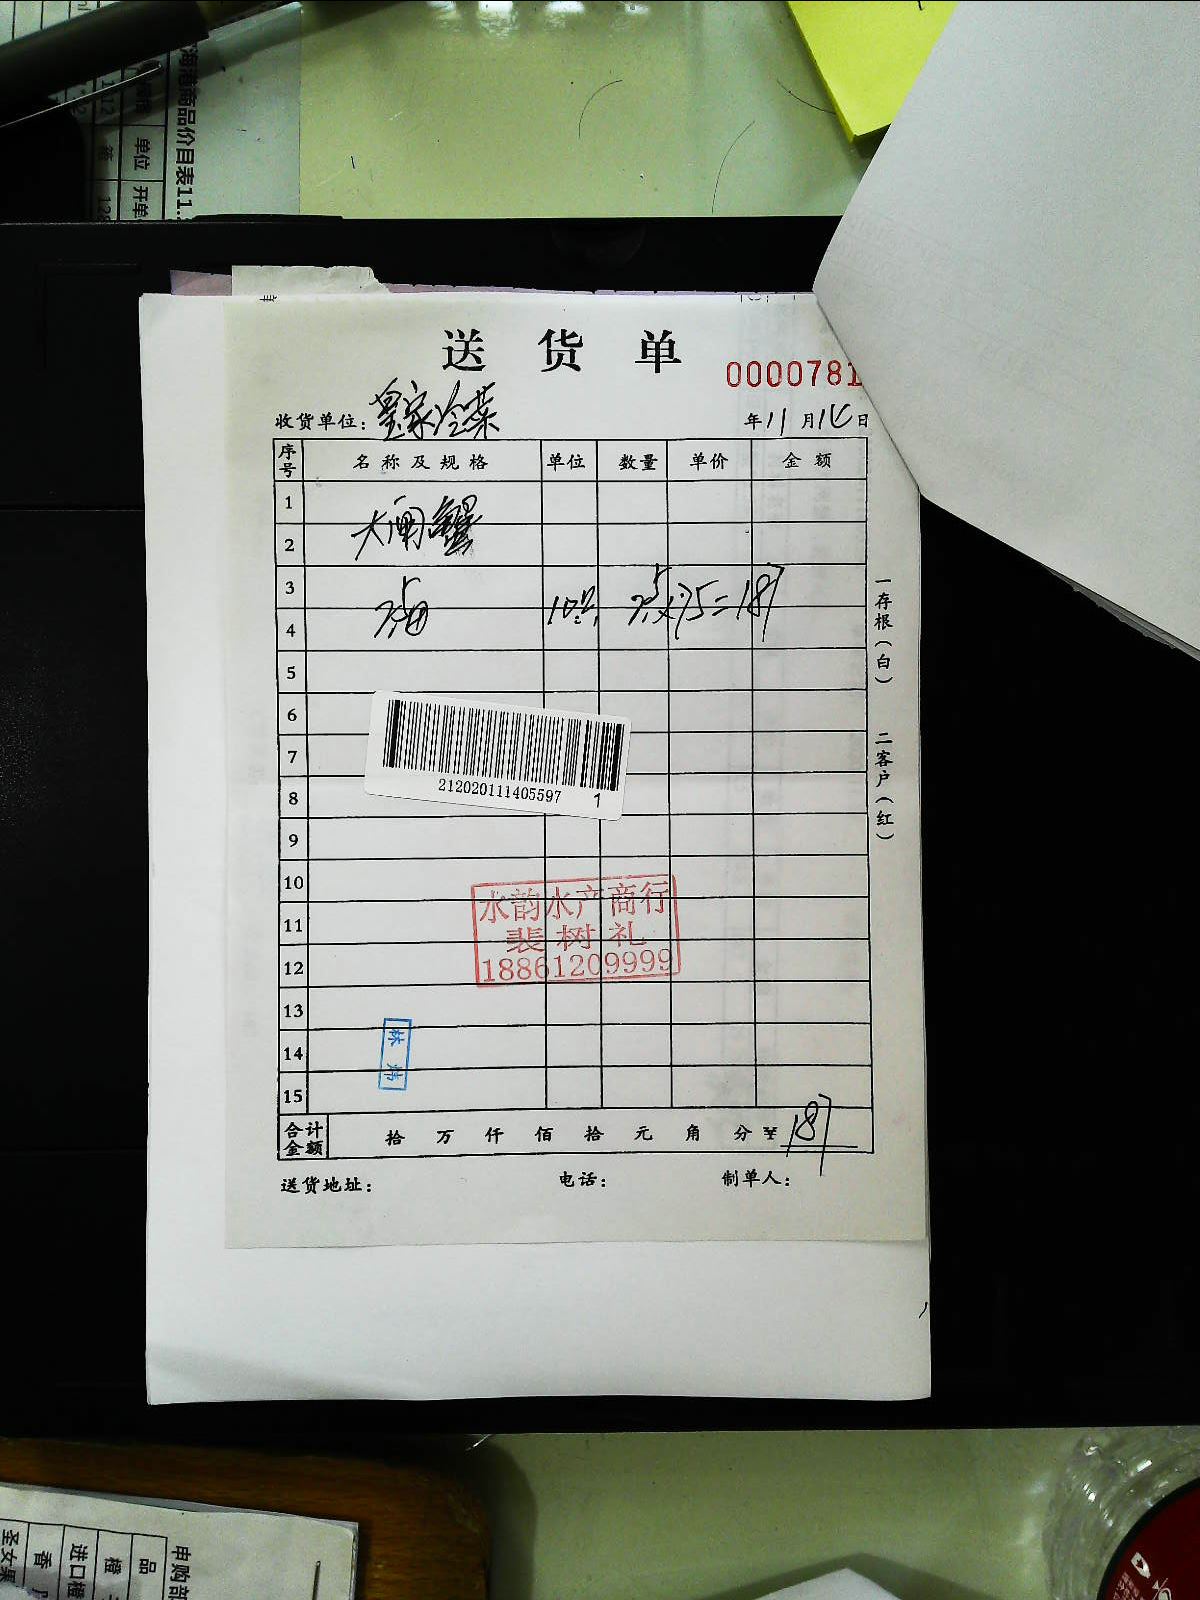 海港商品价目表11.
单位 开单
箱
112
送货单
0000781
收货单位：皇家冷菜
年11月14日
序号 名称及规格 单位 数量 单价 金额
1
2
大闸蟹
3
4
10只 2.5×75=187
5
6
7
8
212020111405597 1
9
10
11
12
水韵水产商行
裴树礼
18861209999
13
14
林炜
15
合计金额 拾 万 仟 佰 拾 元 角 分 ¥ 187
送货地址： 电话： 制单人：
一存根（白） 二客户（红）
申购部
品
橙
进口橙
香
圣女果